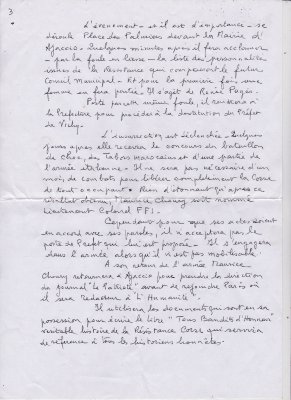 3
L'évènement - et il est d'importance - se
déroule Place des Palmiers devant la Mairie d'
Ajaccio. Quelques minutes après il fera acclamer
- par la foule en liesse - la liste des personnalités
issues de la Résistance qui composeront le futur
Conseil Municipal - Et pour la première fois, une
femme en fera partie. Il s'agit de Renée Pagès.
Porté par cette même foule, il se rendra à
la Préfecture pour procéder à la destitution du Préfet
de Vichy.
L'insurrection est déclenchée - Quelques
jours après elle recevra le concours du bataillon
de Choc, des Tabors marocains et d'une partie de
l'armée italienne - Il ne sera pas nécessaire d'un
mois de combats pour libérer complètement la Corse
de tout occupant. Rien d'étonnant qu'après ce
résultat obtenu, Maurice Choury soit nommé
Lieutenant Colonel FFI.
Cependant pour que ses actes soient
en accord avec ses paroles, il n'acceptera pas le
poste de Préfet qui lui est proposé - Il s'engagera
dans l'armée alors qu'il n'est pas mobilisable.
A son retour de l'armée Maurice
Choury retournera à Ajaccio pour prendre la direction
du journal "Le Patriote" avant de rejoindre Paris où
il sera Rédacteur à "L'Humanité".
Il utilisera les documents qui sont en sa
possession pour écrire le livre "Tous Bandits d'Honneur"
véritable histoire de la Résistance Corse qui servira
de référence à tous les historiens honnêtes.